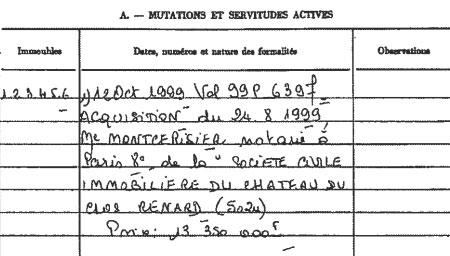 A. — MUTATIONS ET SERVITUDES ACTIVES
Immeubles Dates, numéros et nature des formalités Observations
1.2.3.4.5.6 1) 12 Oct 1999 Vol 99 P 6397
ACQUISITION du 24.8.1999,
Me MONTCERISIER notaire à
Paris 8e de la "SOCIETE CIVILE
IMMOBILIERE DU CHATEAU DU
CLOS RENARD (5024)
Prix: 13 350 000F